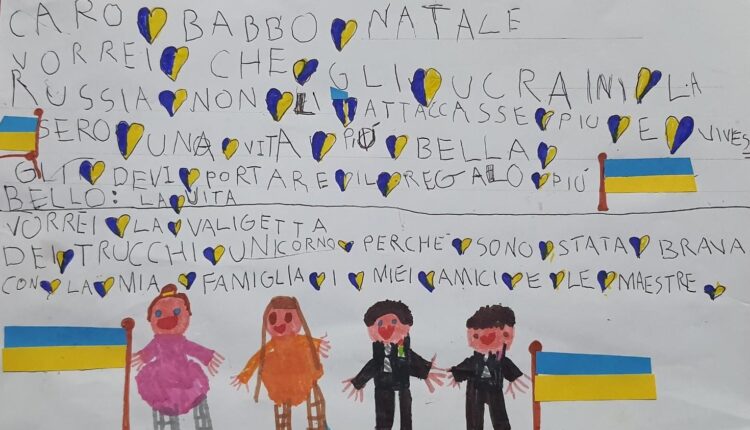 CARO BABBO NATALE
VORREI CHE GLI UCRAINI LA
RUSSIA NON LI ATTACCASSE PIU E VIVES
SERO UNA VITA PIÚ BELLA
GLI DEVI PORTARE IL REGALO PIÚ
BELLO: LA VITA
VORREI LA VALIGETTA
DEI TRUCCHI UNICORNO PERCHÉ SONO STATA BRAVA
CON LA MIA FAMIGLIA I MIEI AMICI E LE MAESTRE.